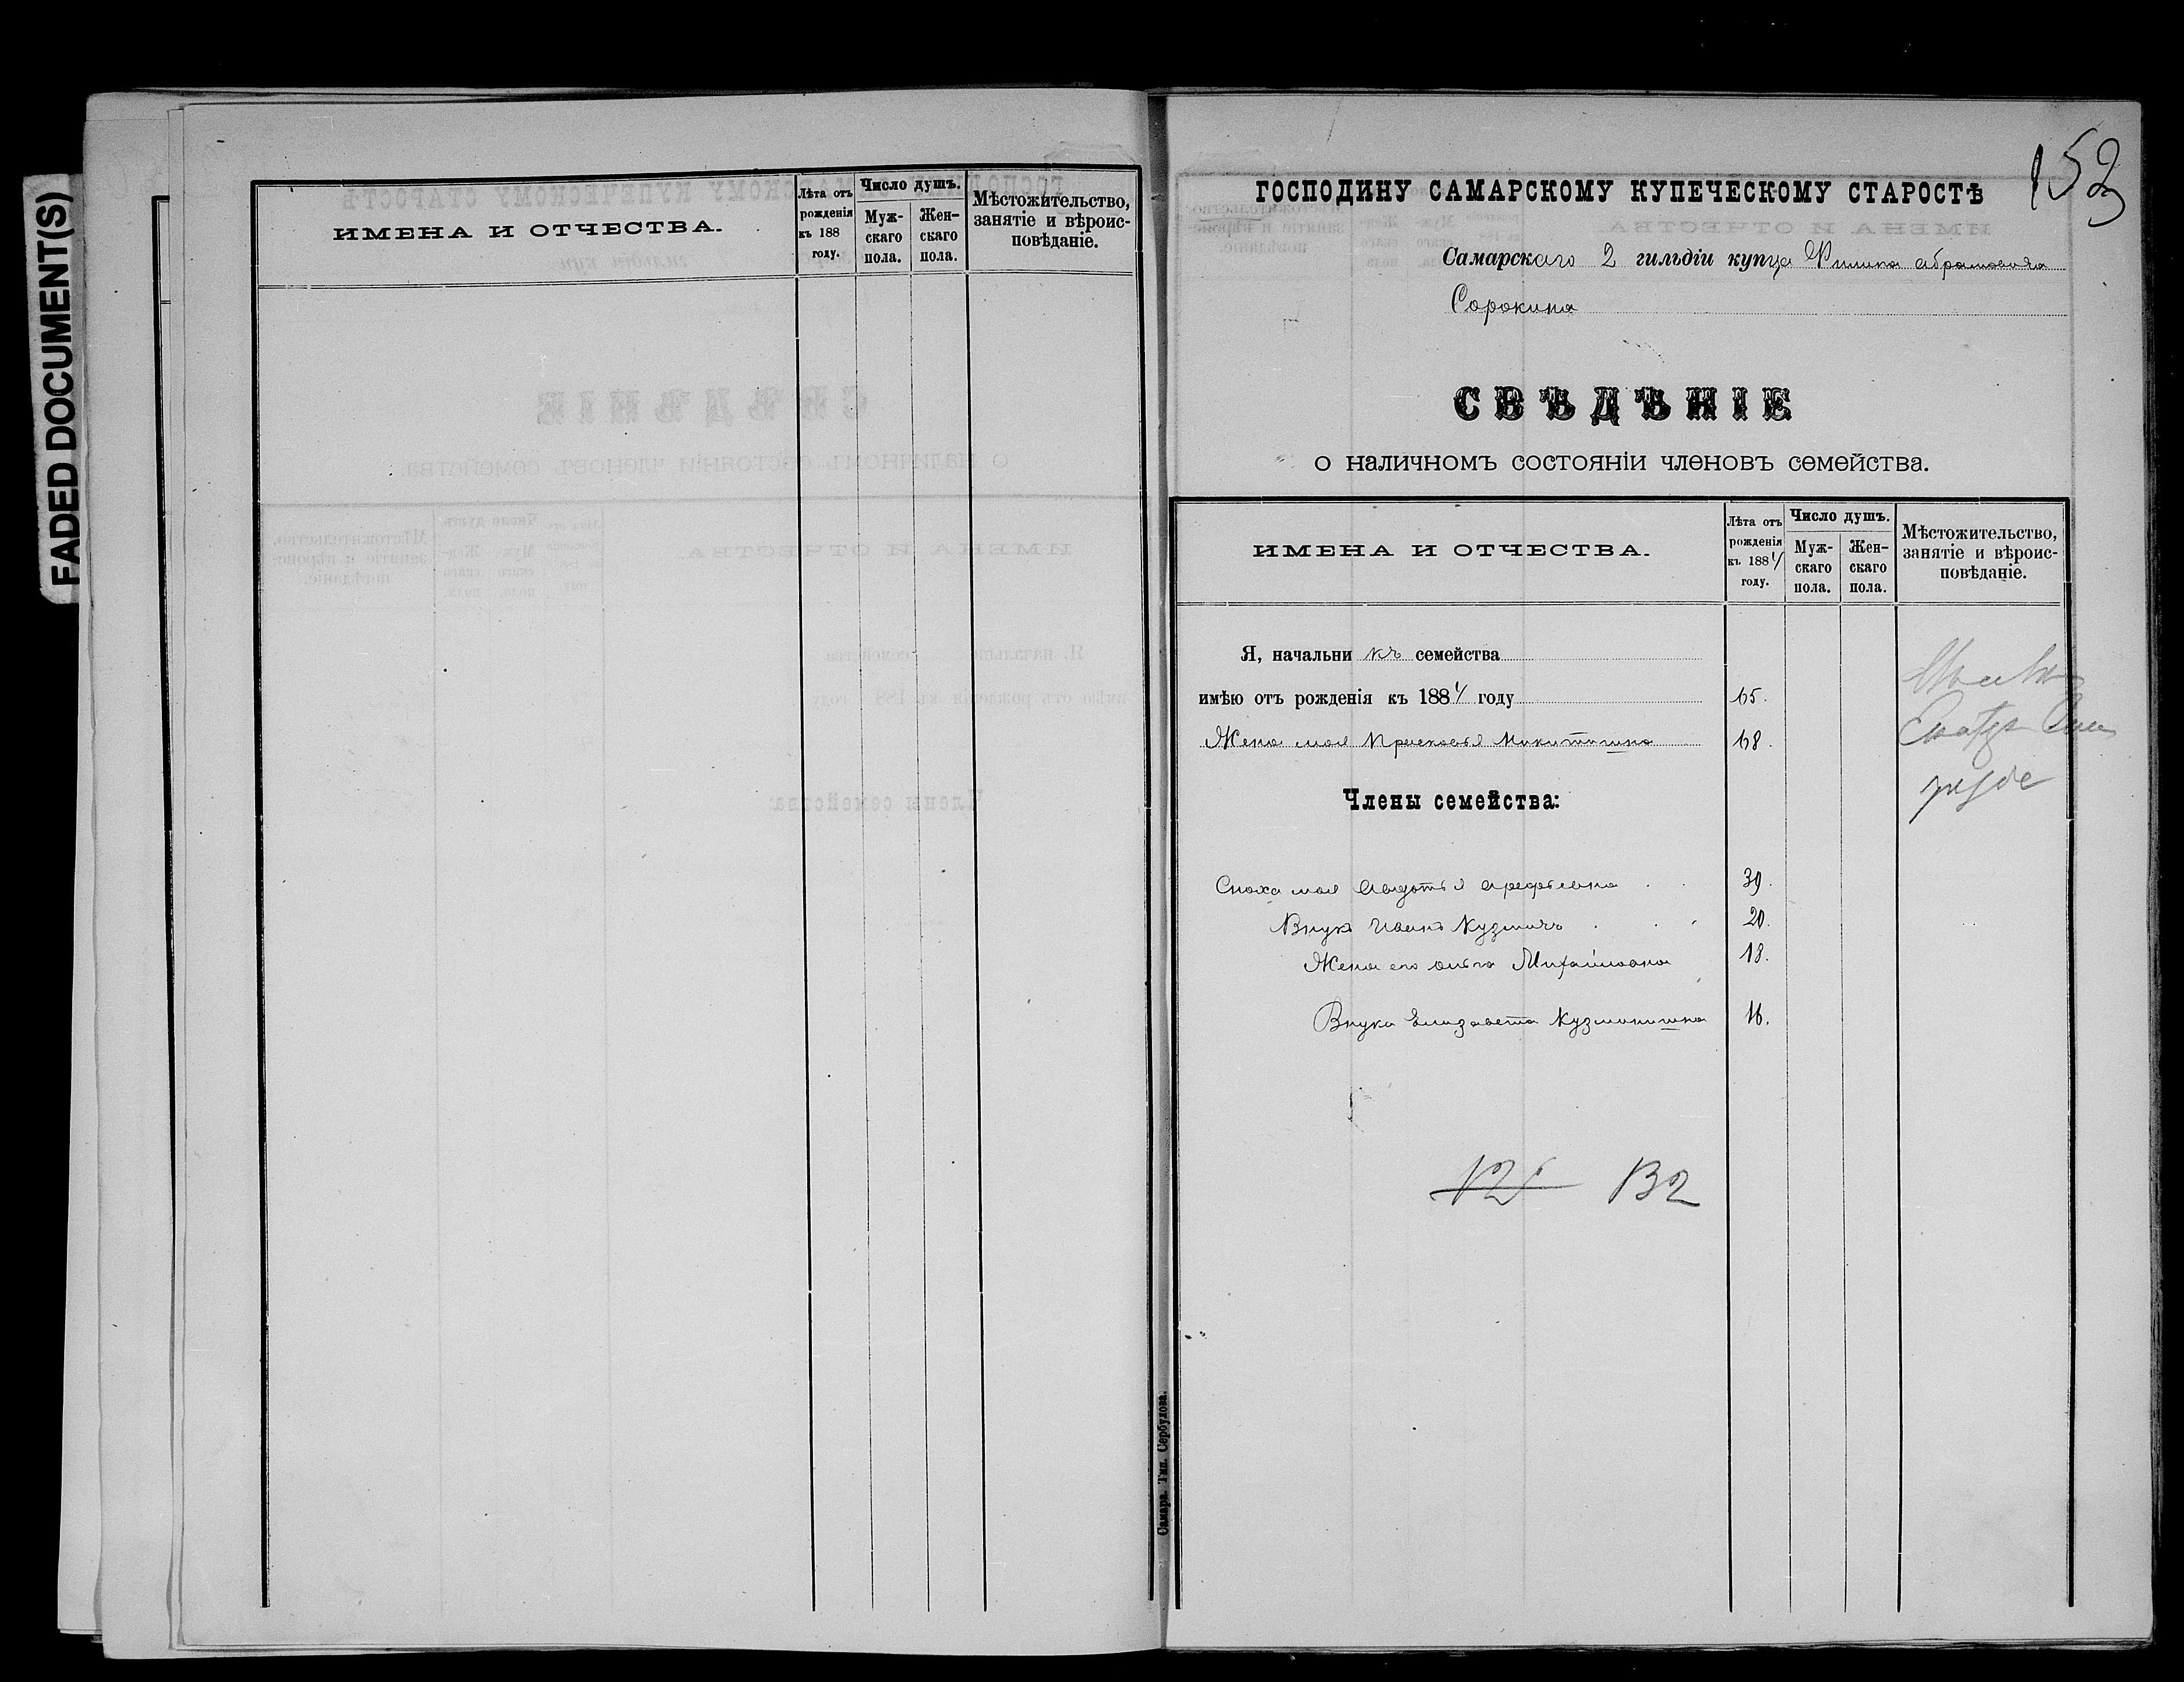 FADED DOCUMENT(S)
ИМЕНА И ОТЧЕСТВА.
Лѣта отъ рожденія къ 188 году.
Число душъ.
Муж-скаго пола.
Жен-скаго пола.
Мѣстожительство, занятіе и вѣроис-повѣданіе.
153
ГОСПОДИНУ САМАРСКОМУ КУПЕЧЕСКОМУ СТАРОСТѢ
Самарскаго 2 гильдіи купца Филипа Абрамовича
Сорокина
СВѢДѢНІЕ
о наличномъ состояніи членовъ семейства.
ИМЕНА И ОТЧЕСТВА.
Лѣта отъ рожденія къ 1884 году.
Число душъ.
Муж-скаго пола.
Жен-скаго пола.
Мѣстожительство, занятіе и вѣроис-повѣданіе.
Я, начальникъ семейства
имѣю отъ рожденія къ 1884 году 65.
Жена моя Прасковья Никитишна 68.
Члены семейства:
Сноха моя Авдотья Арефьевна 39.
Внукъ Иванъ Кузмичъ 20.
Жена его Ольга Михайловна 18.
Внука Елизавета Кузминишна 16.
132
Самара. Тип. Сербулова.